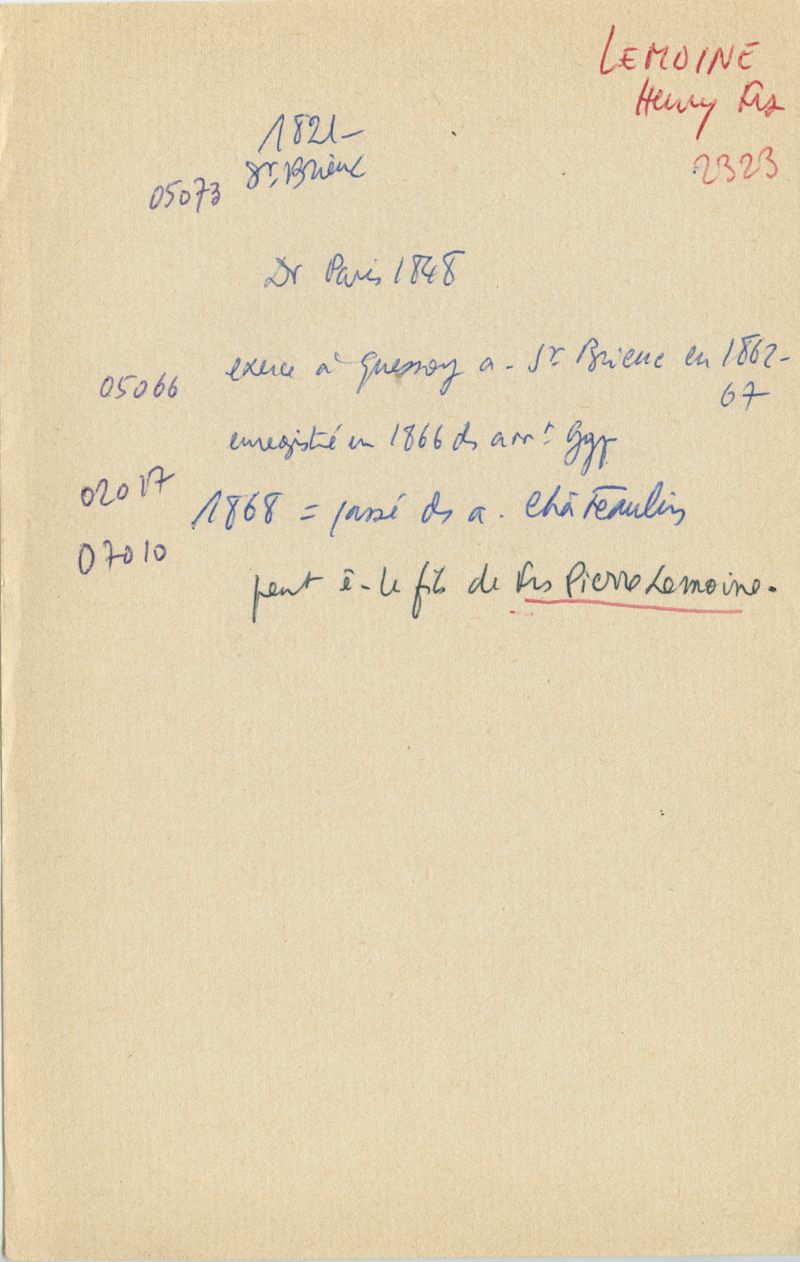 LEMOINE
Henry Frs
2323
1821-
St. Brieuc
05073
Dr Paris 1848
05066 exerce à Quessoy a - St Brieuc en 1862-
67
enregistré en 1866 ds arrt Ggp
02017
1868 = passé ds a. Châteaulin
07010
peut ê- le fils de Frs Pierre Lemoine.